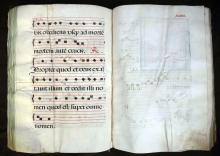 bis obediens usqꝫ ad morte
mortem autē crucis.
Propter quod et deus exal
tavit illum et dedit illi no
men quod est super omne
nomen.